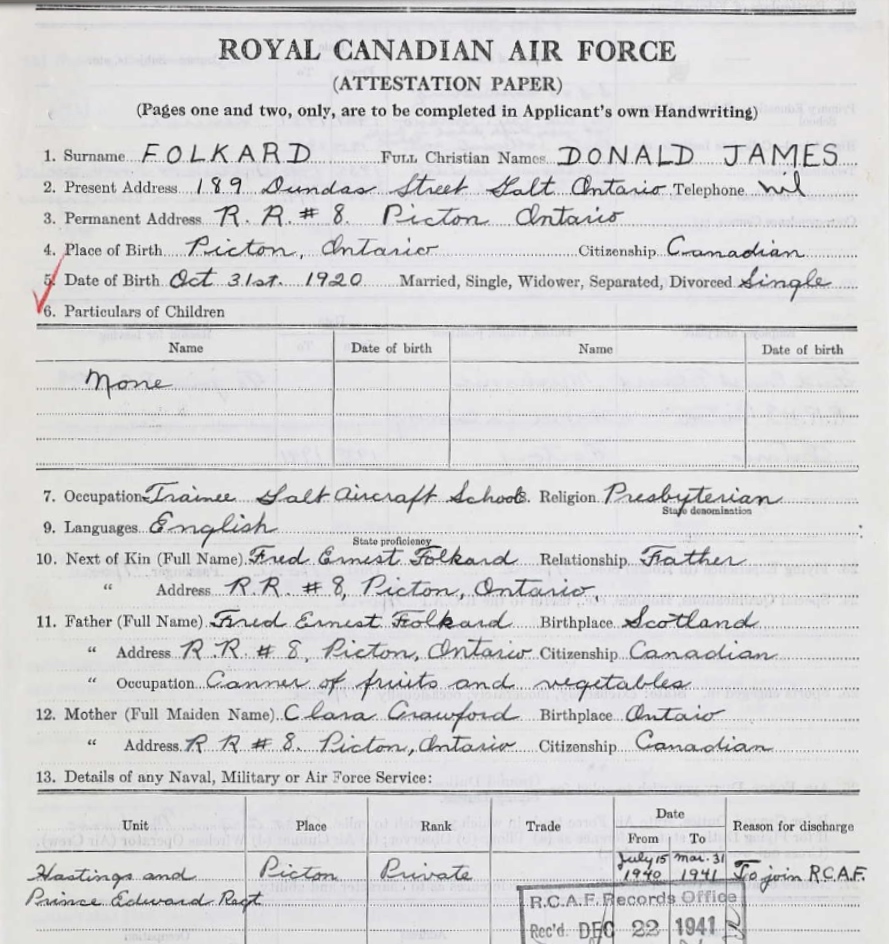 ROYAL CANADIAN AIR FORCE
(ATTESTATION PAPER)
(Pages one and two, only, are to be completed in Applicant's own Handwriting)
1. Surname FOLKARD FULL Christian Names DONALD JAMES
2. Present Address 189 Dundas Street Galt Ontario Telephone nil
3. Permanent Address R.R. # 8. Picton Ontario
4. Place of Birth Picton, Ontario Citizenship Canadian
5. Date of Birth Oct 31st. 1920 Married, Single, Widower, Separated, Divorced Single
6. Particulars of Children
Name Date of birth Name Date of birth
None
7. Occupation Trainee Galt Aircraft School 8. Religion Presbyterian
State denomination
9. Languages English
State proficiency
10. Next of Kin (Full Name) Fred Ernest Folkard Relationship Father
" Address R.R. # 8, Picton, Ontario.
11. Father (Full Name) Fred Ernest Folkard Birthplace Scotland
" Address R.R. # 8, Picton, Ontario Citizenship Canadian
" Occupation Canner of fruits and vegetables
12. Mother (Full Maiden Name) Clara Crawford Birthplace Ontaio
" Address R R # 8. Picton, Ontario Citizenship Canadian
13. Details of any Naval, Military or Air Force Service:
Unit Place Rank Trade Date From To Reason for discharge
Hastings and Picton Private July 15 1940 Mar. 31 1941 To join R.C.A.F.
Prince Edward Regt
R.C.A.F. Records Office
Rec'd. DEC 22 1941